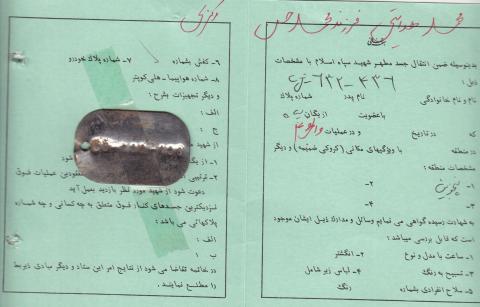 محمد هدایتی فرزند محمدحسن
بدینوسیله ضمن انتقال جسد مطهر شهید سپاه اسلام با مشخصات
ذیل:
۴۳۶-۶۳۲
نام و نام خانوادگی نام پدر شماره پلاک
باعضویت ازیگان
که درتاریخ و در عملیات
در منطقه با ویژگیهای مکانی (کروکی ضمیمه) و دیگر
مشخصات منطقه:
۱- ۲-
۳- ۴-
به شهادت رسیده گواهی می نمایم وسائل و مدارک ذیل ایشان موجود
است که قابل بررسی میباشد:
۱- ساعت با مدل و نوع ۲- انگشتر
۳- تسبیح به رنگ ۴- لباس زیر شامل
۵- سلاح انفرادی بشماره رنگ
مرکزی
۶- کفش بشماره ۷- شماره پلاک خودرو
۸- شماره هواپیما - هلی کوپتر
و دیگر تجهیزات بطرح:
الف:
ج:
از شهید
۱- از یگ شود
۲- ترتیبی مفقودین عملیات فوق
دعوت شود از شهید مورد نظر بازدید بعمل آید
نزدیکترین جسدهای کنار فوق متعلق به چه کسانی و چه شماره
پلاکهائی می باشد:
الف:
ب:
در خاتمه تقاضا می شود از نتایج امر این ستاد و دیگر مبادی ذیربط
را مطلع نمایند.